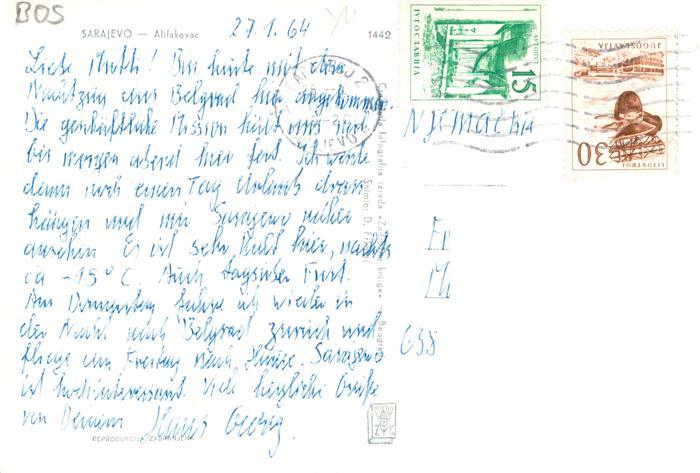 BOS
27.1.64
SARAJEVO — Alifakovac
1442
Liebe Mutti! Bin heute mit dem
Nachtzug aus Belgrad hier angekommen.
Die geschäftliche Mission hält mich noch
bis morgen abend hier fest. Ich werde
dann noch einen Tag Urlaub dran-
hängen und mir Sarajevo näher
ansehen. Es ist sehr kalt hier, nachts
ca -15°C. Auch tagsüber Frost.
Am Donnerstag fahre ich wieder in
der Nacht nach Belgrad zurück und
fliege am Freitag nach Hause. Sarajevo
ist hochinteressant. Viele herzliche Grüße
von Deinem Hans
REPRODUKCIJA ZABRANJENA
JUGOSLAVIJA
15
JUGOSLAVIJA
30
LITOSTROJ
Njemačka
Fr
638